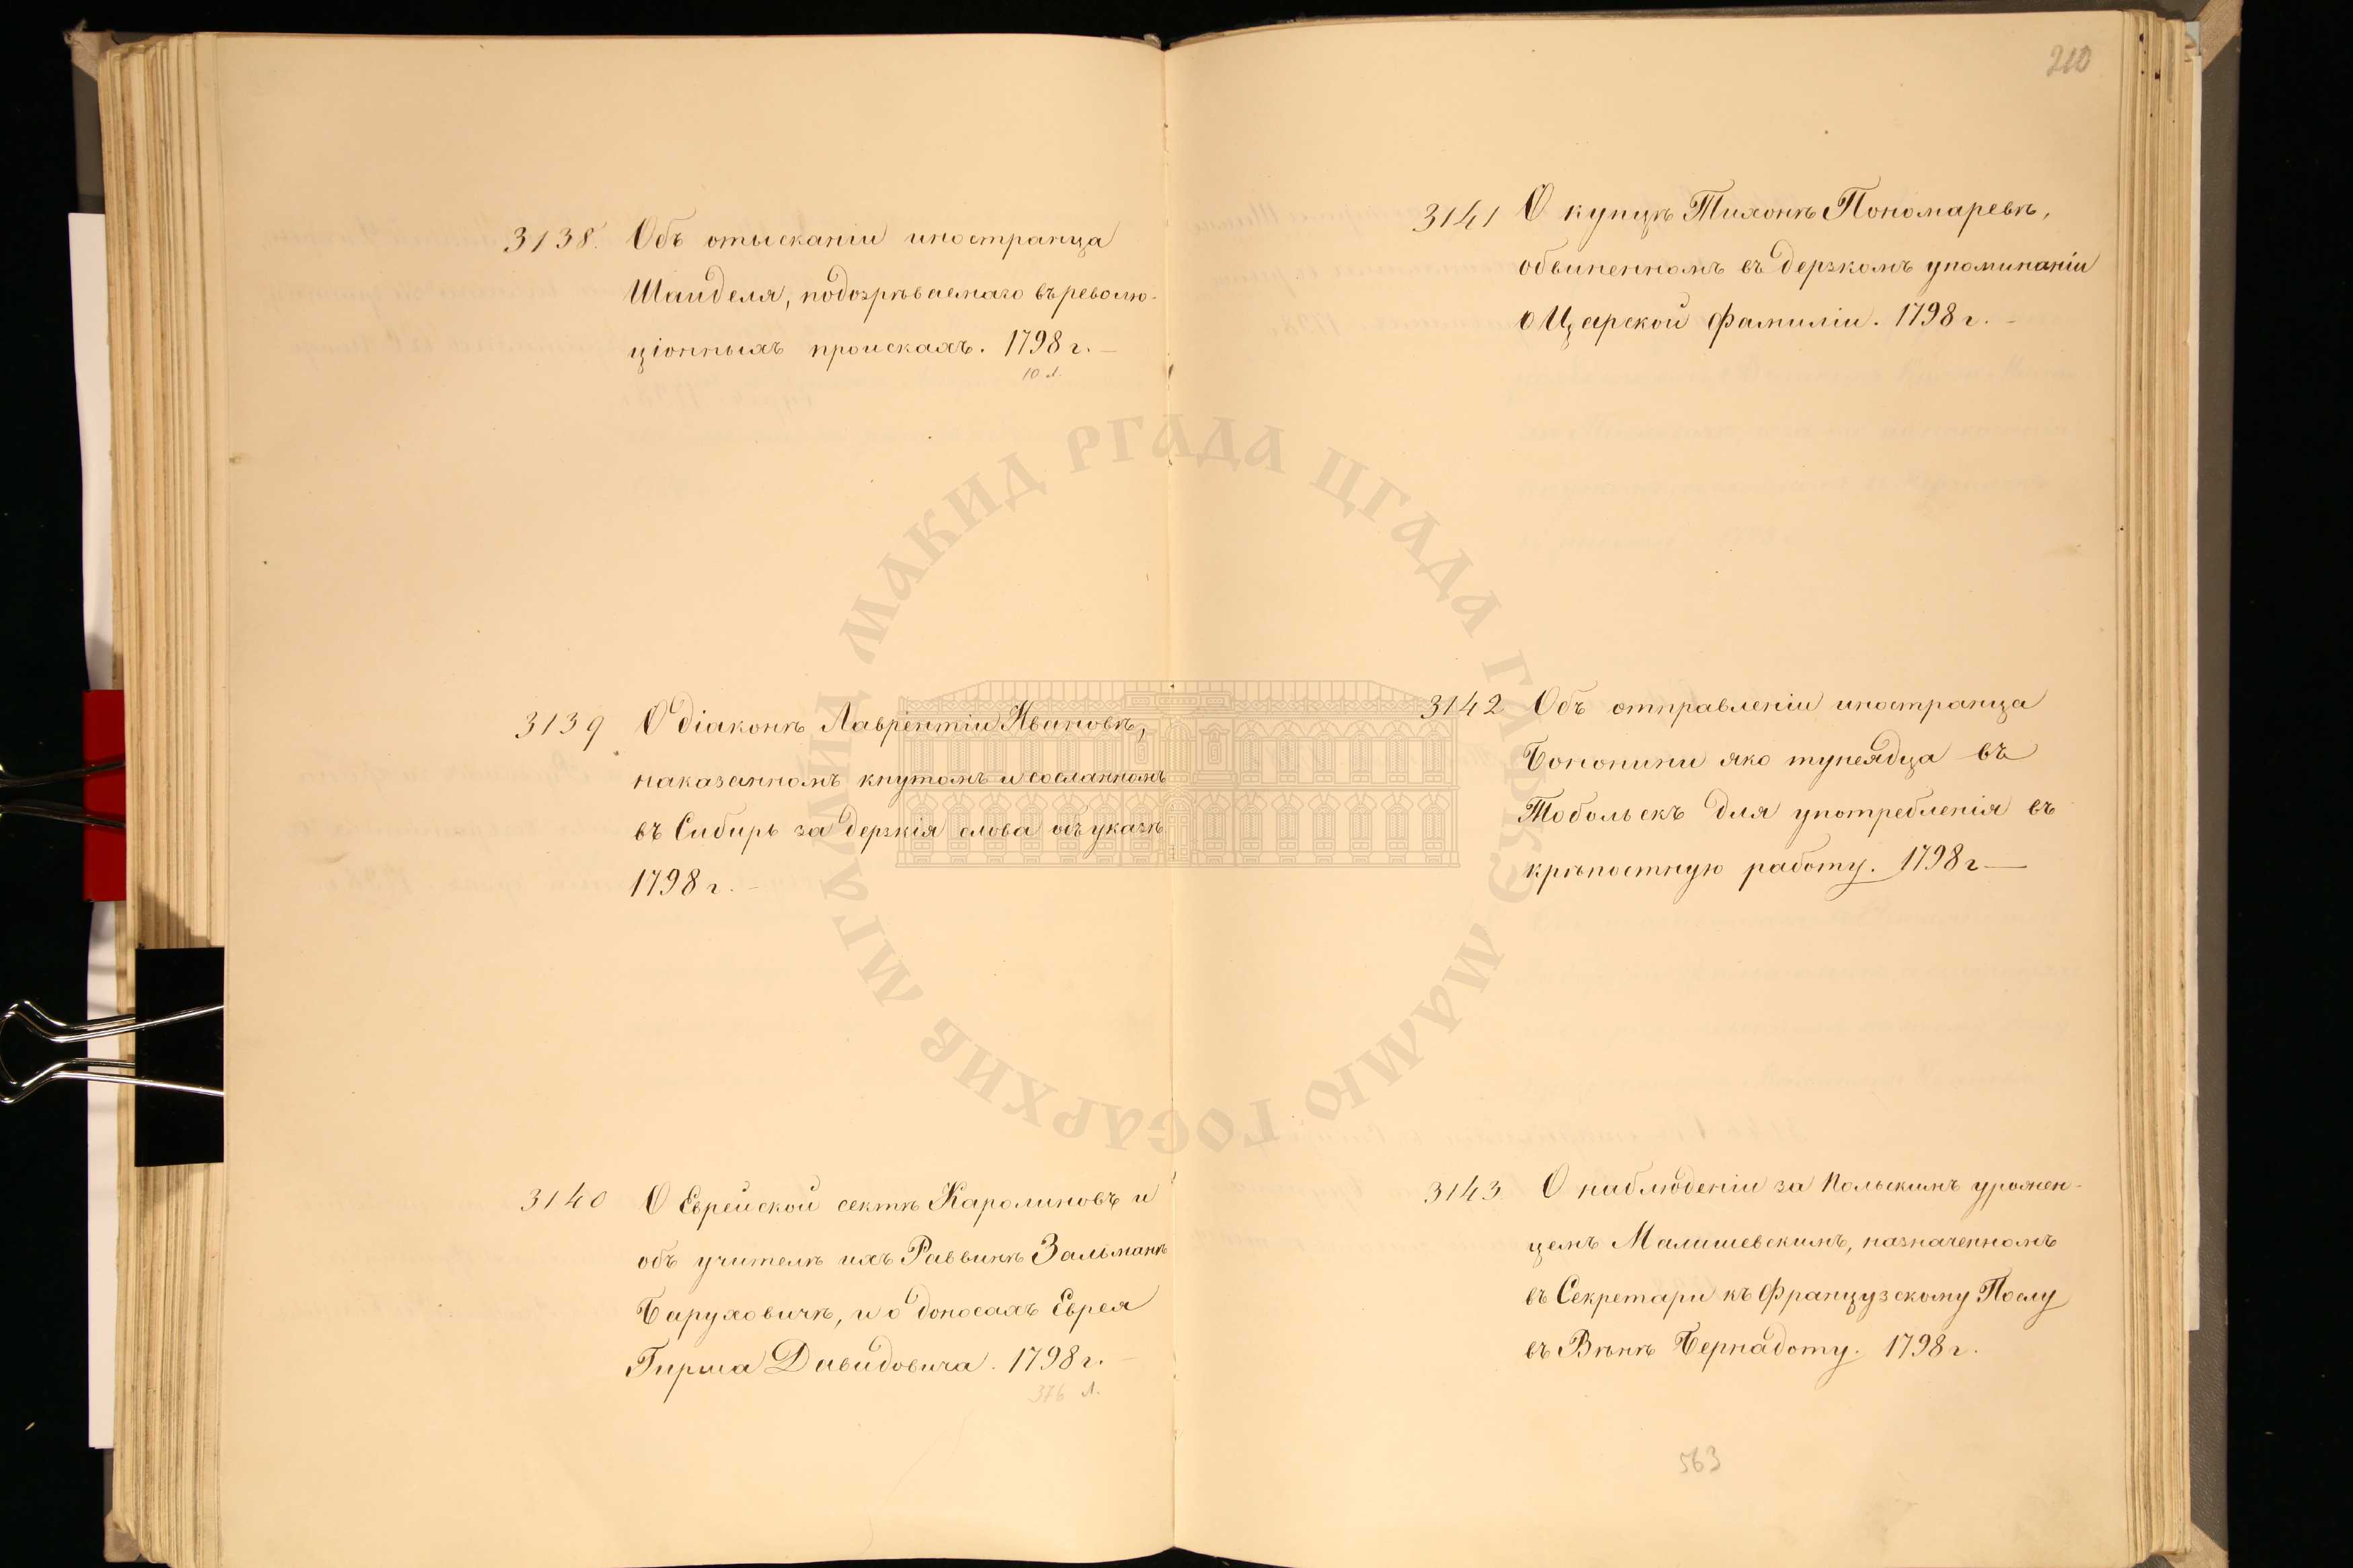 3138. Объ отысканіи иностранца
Шанделя, подозрѣваемаго въ револю-
ціонныхъ проискахъ. 1798 г. —
10 л.
3139 О діаконѣ Лаврентіи Ивановѣ,
наказанномъ кнутомъ и сосланномъ
въ Сибирь за дерзкія слова объ указѣ
1798 г. —
3140 О Еврейской сектѣ Каролиновъ и
объ учителѣ ихъ Раввинѣ Зальманѣ
Баруховичѣ, и о доносахъ Еврея
Гирша Давидовича. 1798 г. —
376 л.
210
3141 О купцѣ Тихонѣ Пономаревѣ,
обвиненномъ въ дерзкомъ упоминаніи
о Царской фамиліи. 1798 г. —
3142 Объ отправленіи иностранца
Бононини яко тунеядца въ
Тобольскъ для употребленія въ
крѣпостную работу. 1798 г —
3143 О наблюденіи за Польскимъ урожен-
цемъ Малишевскимъ, назначенномъ
въ Секретари къ Французскому Послу
въ Вѣнѣ Бернадоту. 1798 г.
563
ГОСАРХИВ МГАМИД МАКИД РГАДА ЦГАДА ГАФКЭ МАМЮ